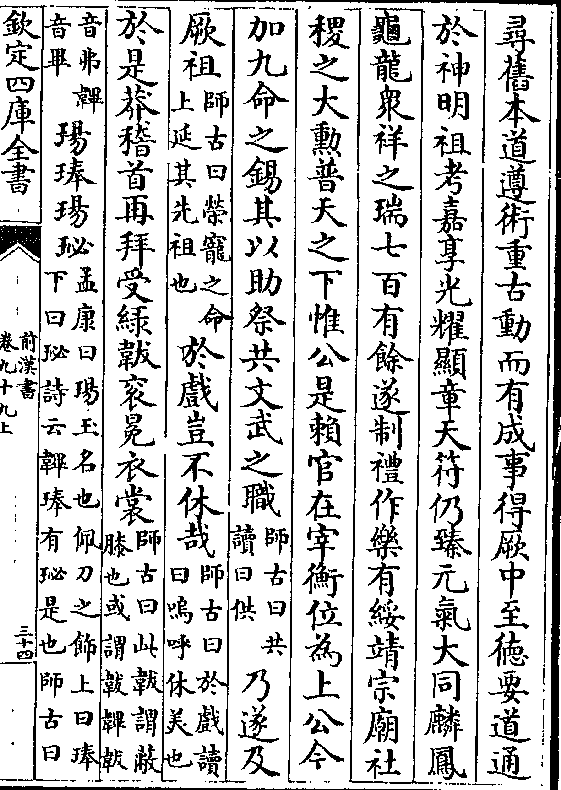 尋舊本道遵術重古動而有成事得厥中至徳要道通
於神明祖考嘉享光耀顯章天符仍臻元氣大同麟鳳
龜龍衆祥之瑞七百有餘遂制禮作樂有綏靖宗廟社
稷之大勲普天之下惟公是賴官在宰衡位為上公今
加九命之錫其以助祭共文武之職師古曰共讀曰供乃遂及
厥祖師古曰榮寵之命上延其先祖也於戲豈不休哉師古曰於戲讀曰嗚呼休美也
於是莽稽首再拜受緑韍衮冕衣裳師古曰此韍謂蔽膝也或謂韍韠韍
音弗韠音畢瑒琫瑒珌孟康曰瑒玉名也佩刀之飾上曰琫下曰珌詩云鞞琫有珌是也師古曰
欽定四庫全書
前漢書
卷九十九上
三十四